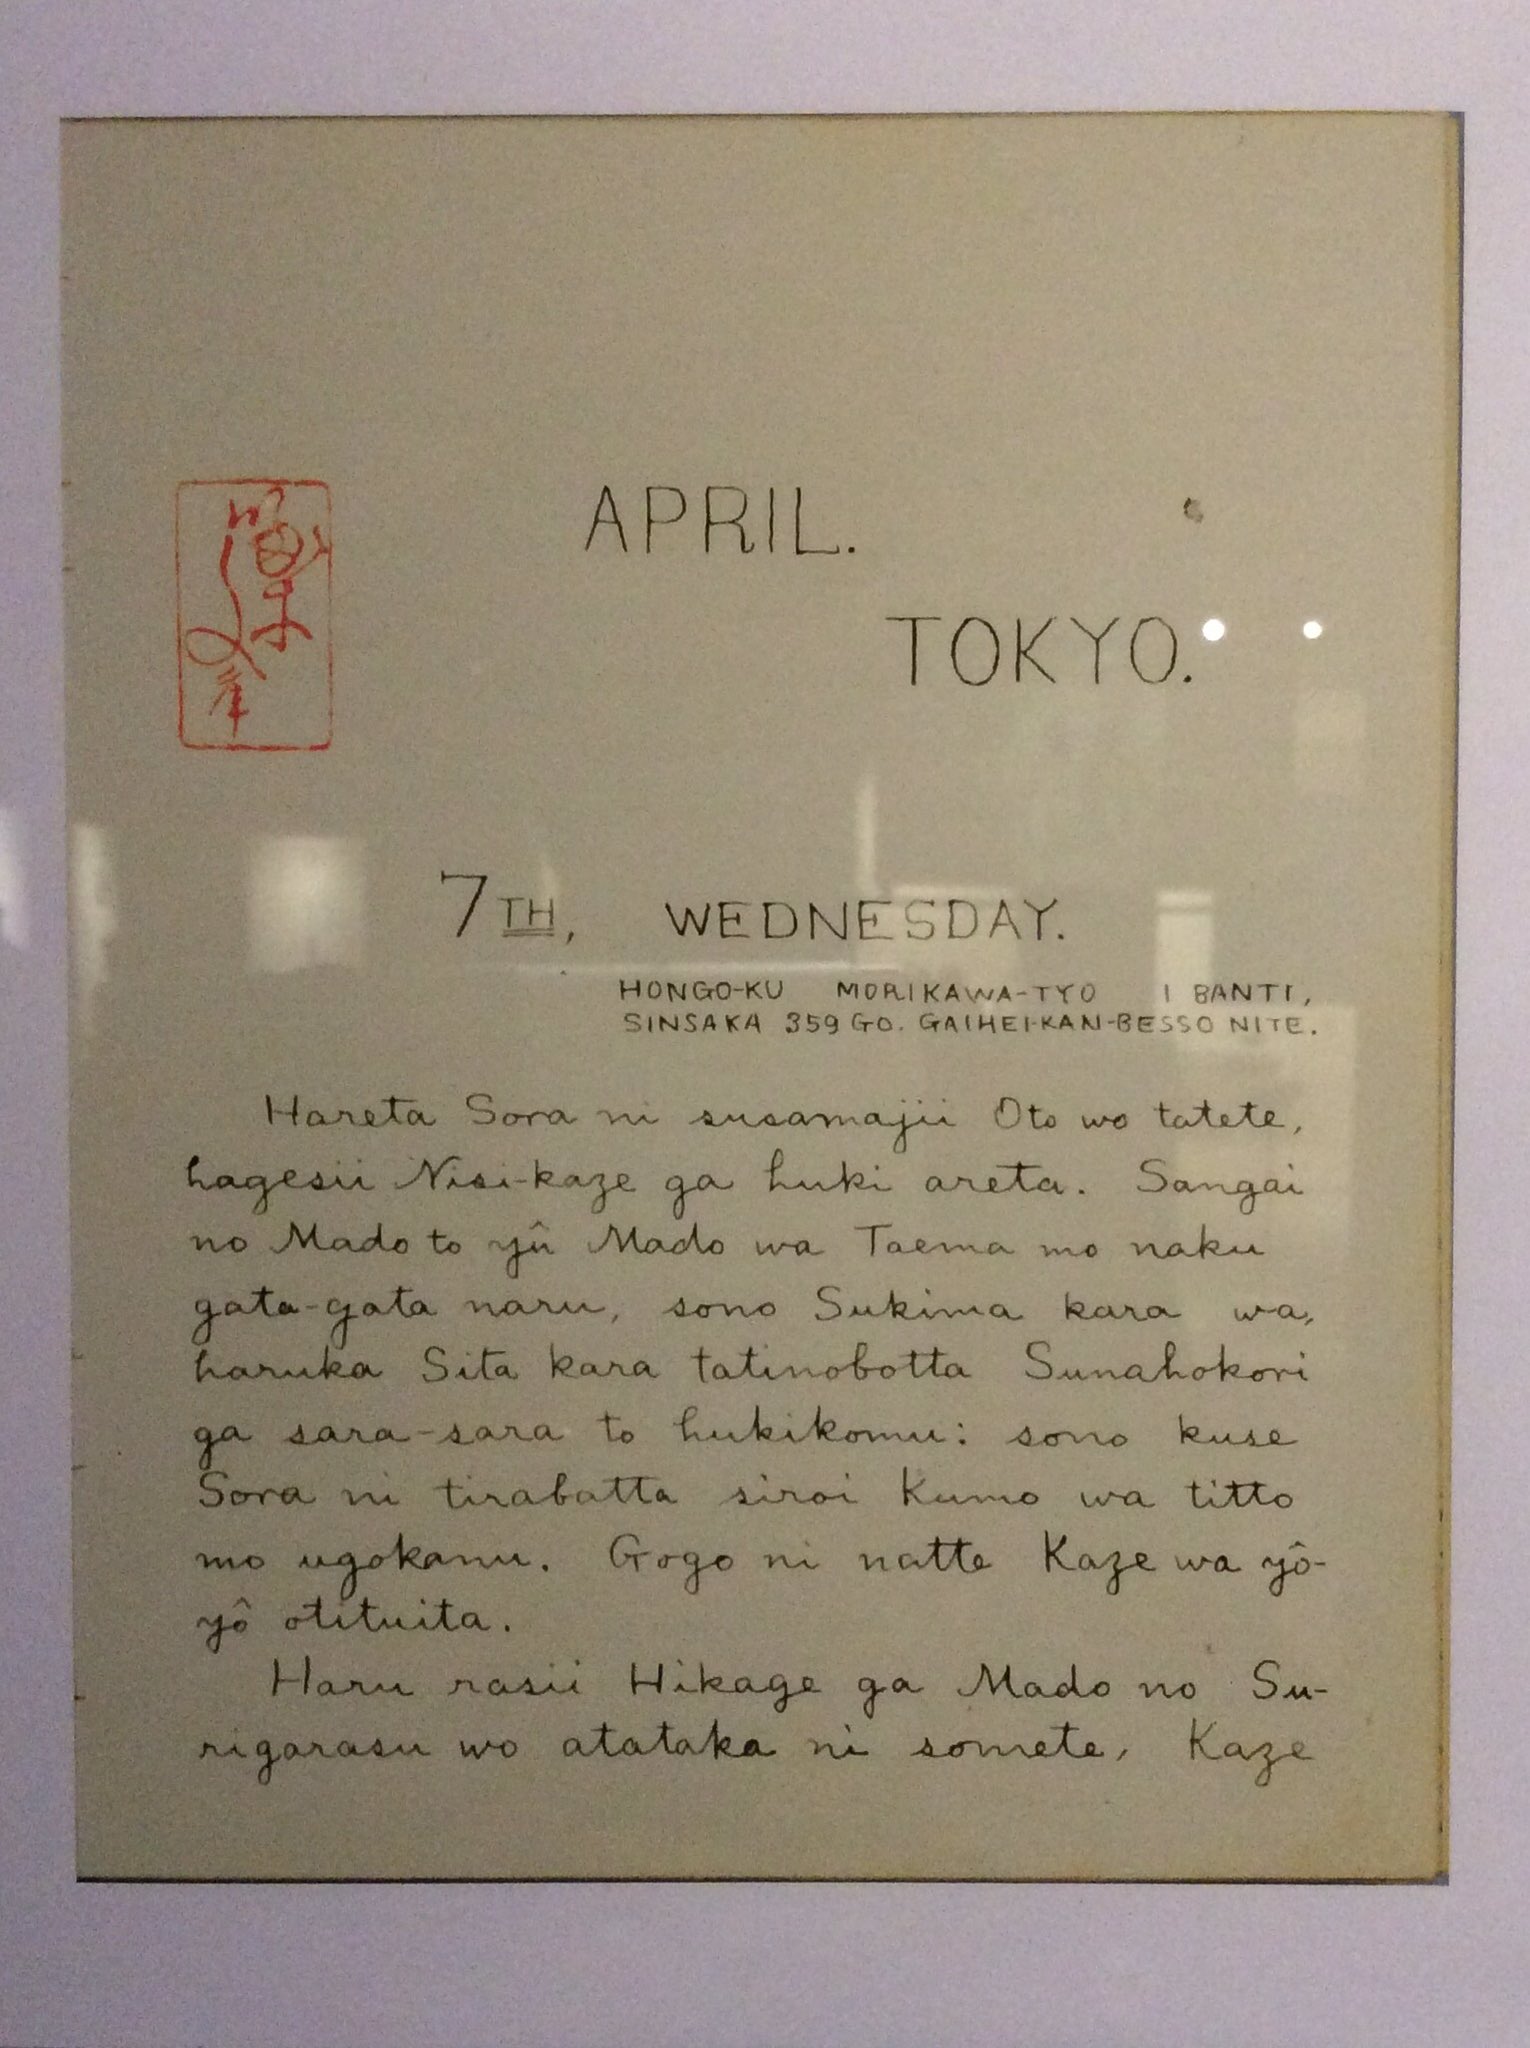 APRIL.
TOKYO.
7TH, WEDNESDAY.
HONGO-KU MORIKAWA-TYO 1 BANTI,
SINSAKA 359 GO. GAIHEI-KAN-BESSO NITE.
Hareta Sora ni susamajii Oto wo tatete,
hagesii Nisi-kaze ga huki areta. Sangai
no Mado to yû Mado wa Taema mo naku
gata-gata naru, sono Sukima kara wa,
haruka Sita kara tatinobotta Sunahokori
ga sara-sara to hukikomu: sono kuse
Sora ni tirabatta siroi Kumo wa titto
mo ugokanu. Gogo ni natte Kaze wa yô-
yô otituita.
Haru rasii Hikage ga Mado no Su-
rigarasu wo atataka ni somete, Kaze